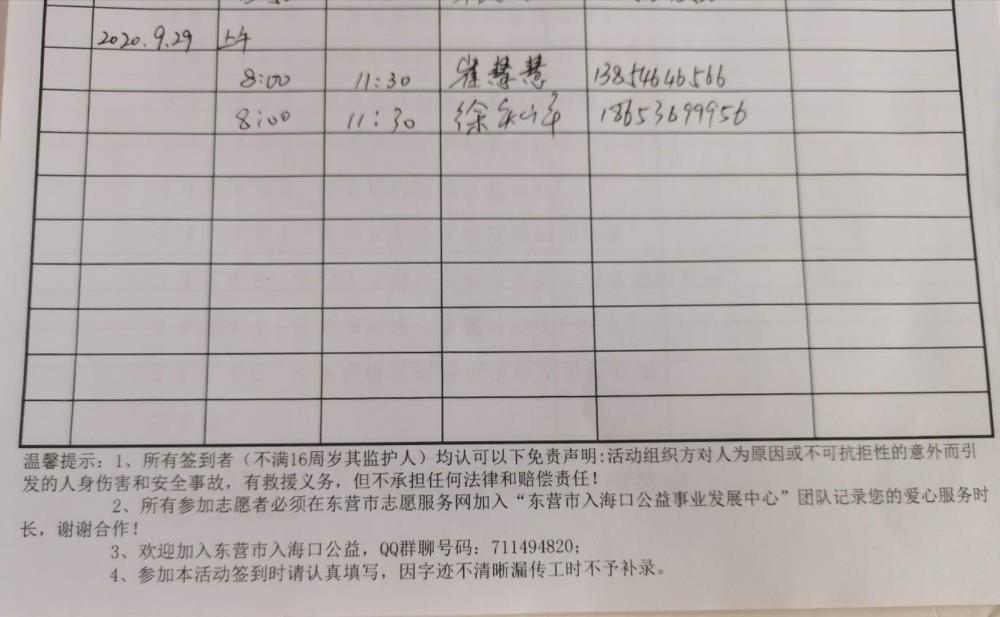 2020.9.29 上午
8:00 11:30 崔慧慧 13854646566
8:00 11:30 徐 18653699956
温馨提示：1、所有签到者（不满16周岁其监护人）均认可以下免责声明:活动组织方对人为原因或不可抗拒性的意外而引
发的人身伤害和安全事故，有救援义务，但不承担任何法律和赔偿责任！
2、所有参加志愿者必须在东营市志愿服务网加入“东营市入海口公益事业发展中心”团队记录您的爱心服务时
长，谢谢合作！
3、欢迎加入东营市入海口公益，QQ群聊号码：711494820；
4、参加本活动签到时请认真填写，因字迹不清晰漏传工时不予补录。